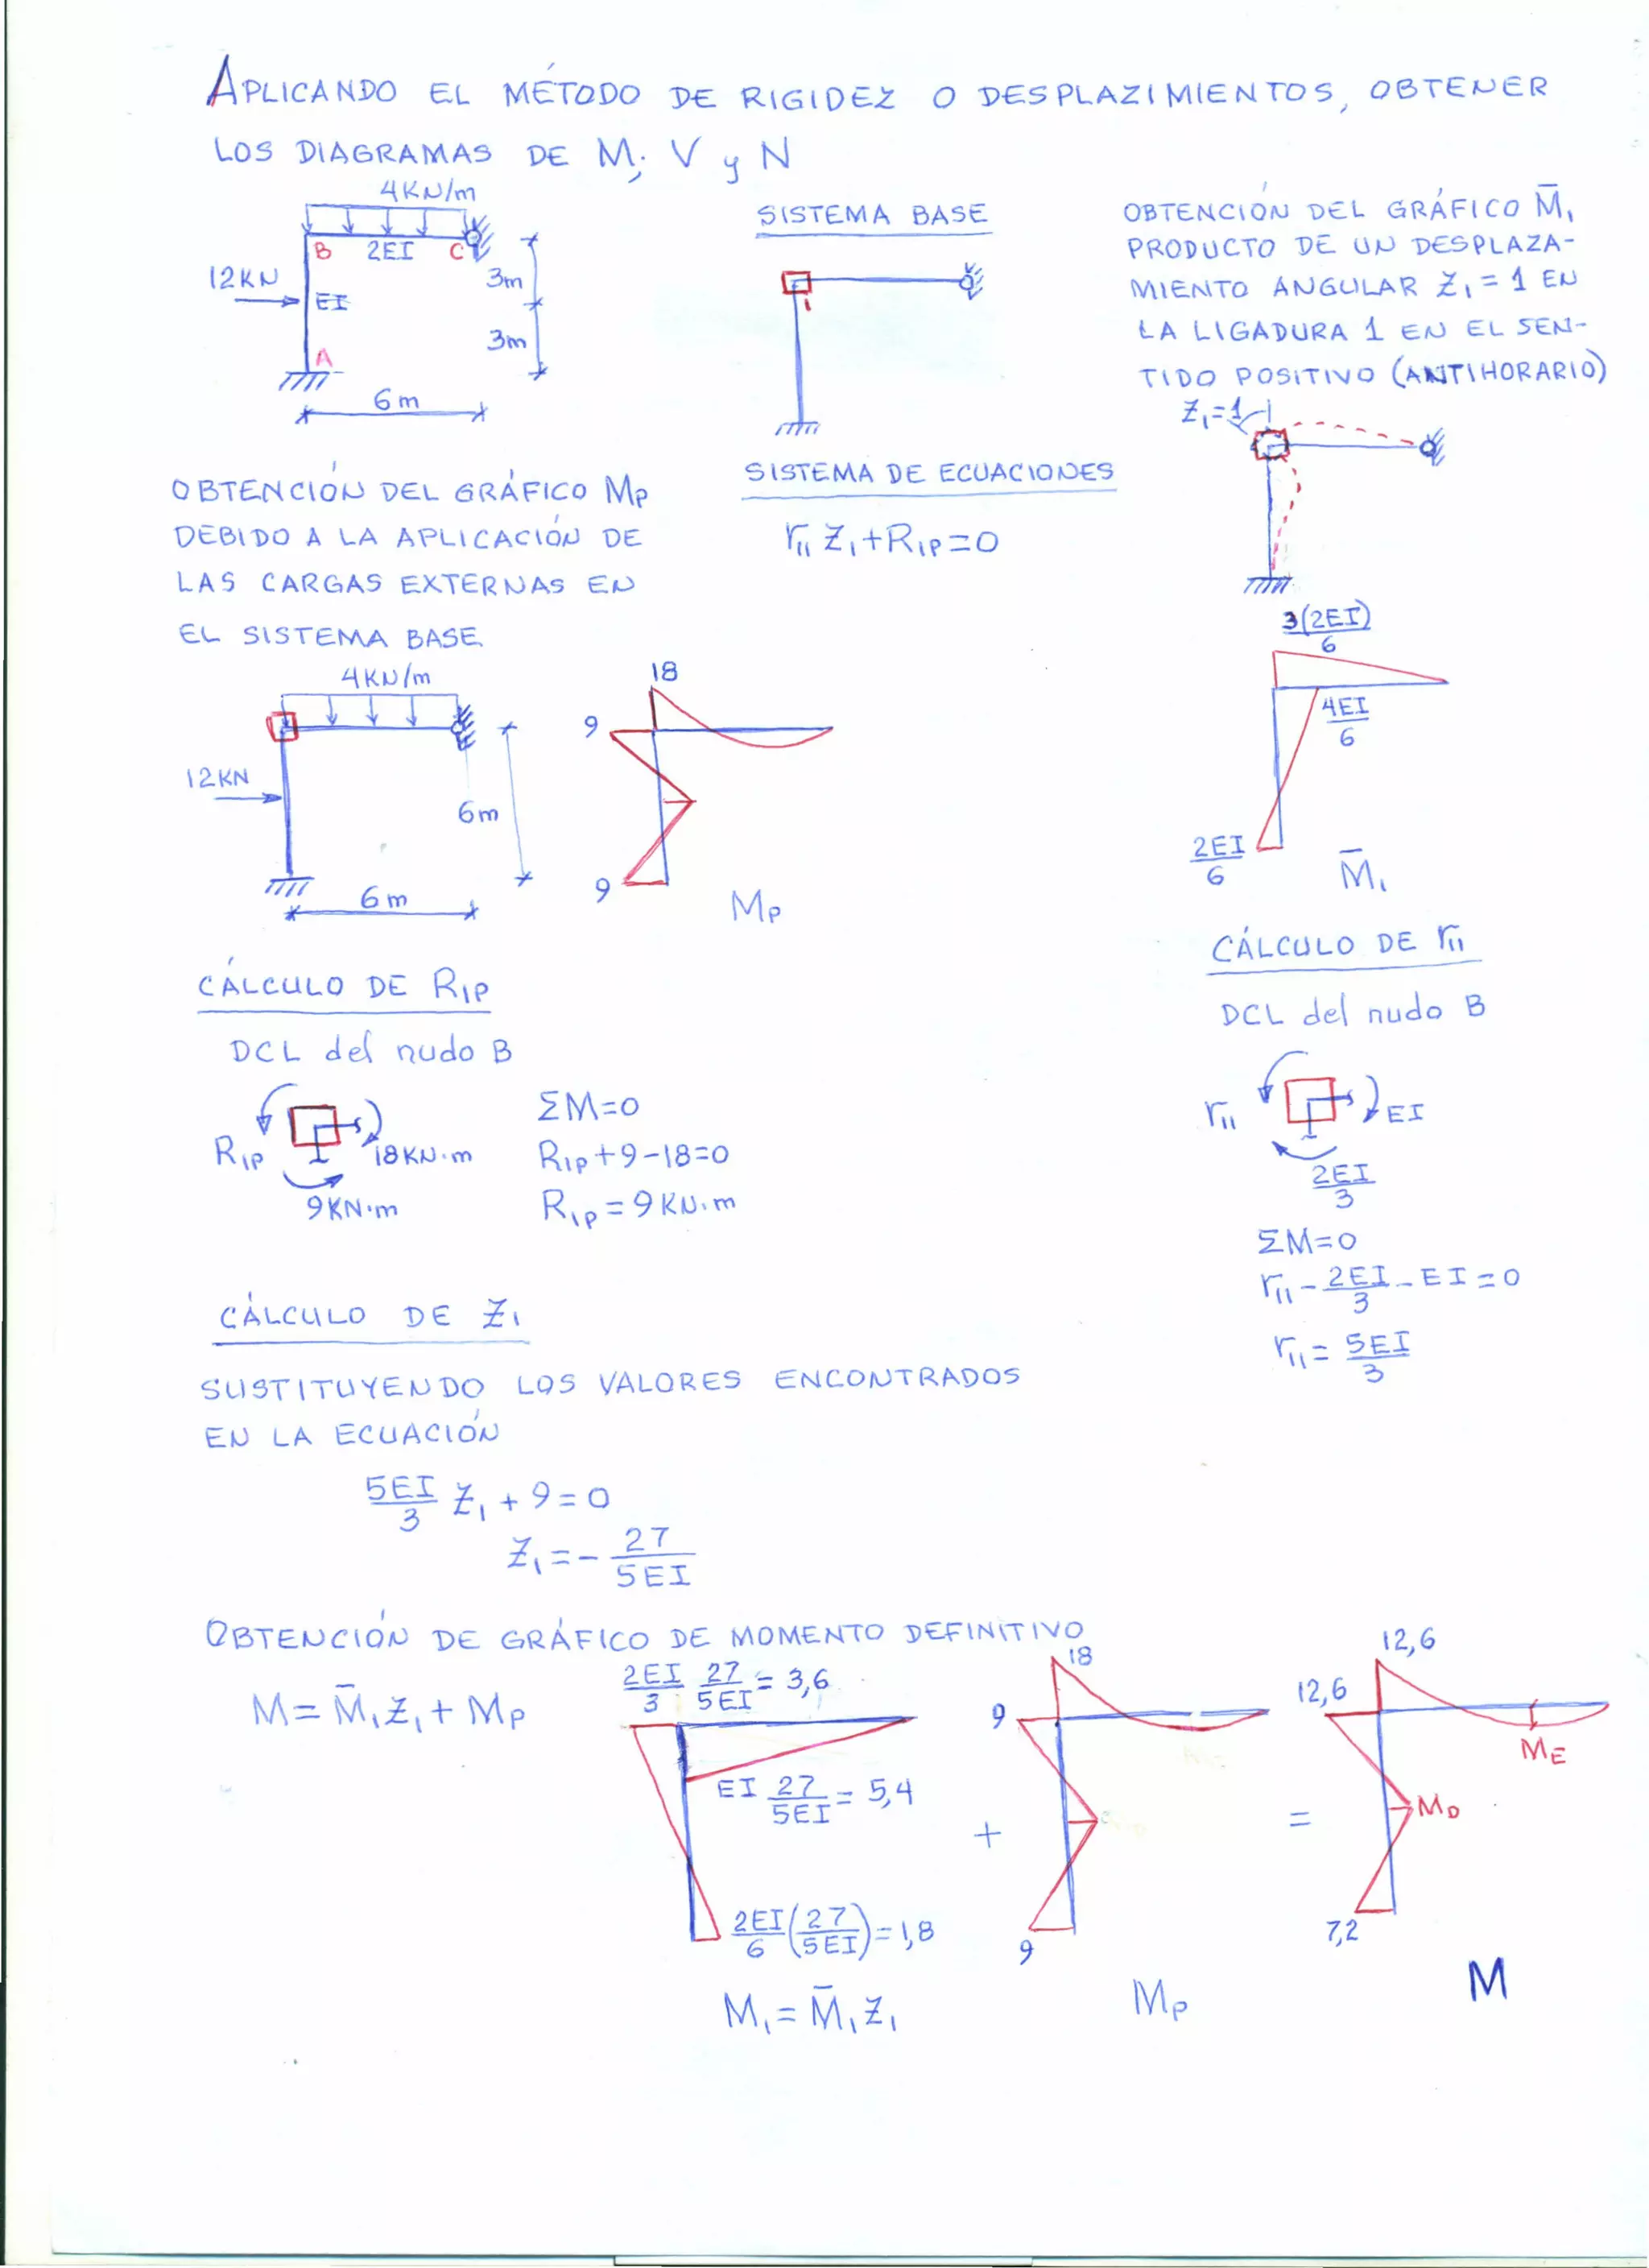 APLICANDO EL MÉTODO DE RIGIDEZ O DESPLAZIMIENTOS, OBTENER
LOS DIAGRAMAS DE M; V y N
4KN/m
B 2EI C
12KN
EI
3m
3m
A
6m
SISTEMA BASE
1
SISTEMA DE ECUACIONES
r11 Z1+R1P=0
OBTENCIÓN DEL GRÁFICO M̄1
PRODUCTO DE UN DESPLAZA-
MIENTO ANGULAR Z1=1 EN
LA LIGADURA 1 EN EL SEN-
TIDO POSITIVO (ANTIHORARIO)
Z1=1
3(2EI)/6
4EI/6
2EI/6
M̄1
OBTENCIÓN DEL GRÁFICO Mp
DEBIDO A LA APLICACIÓN DE
LAS CARGAS EXTERNAS EN
EL SISTEMA BASE
4KN/m
12KN
6m
6m
18
9
9
Mp
CÁLCULO DE R1P
DCL del nudo B
R1P
18KN·m
9KN·m
ΣM=0
R1P+9-18=0
R1P=9KN·m
CÁLCULO DE r11
DCL del nudo B
r11
EI
2EI/3
ΣM=0
r11-2EI/3-EI=0
r11=5EI/3
CÁLCULO DE Z1
SUSTITUYENDO LOS VALORES ENCONTRADOS
EN LA ECUACIÓN
5EI/3 Z1+9=0
Z1=-27/5EI
OBTENCIÓN DE GRÁFICO DE MOMENTO DEFINITIVO
M=M̄1Z1+Mp
2EI/3 27/5EI=3,6
EI 27/5EI=5,4
2EI/6(27/5EI)=1,8
M1=M̄1Z1
+
18
9
9
Mp
=
12,6
12,6
ME
MD
7,2
M